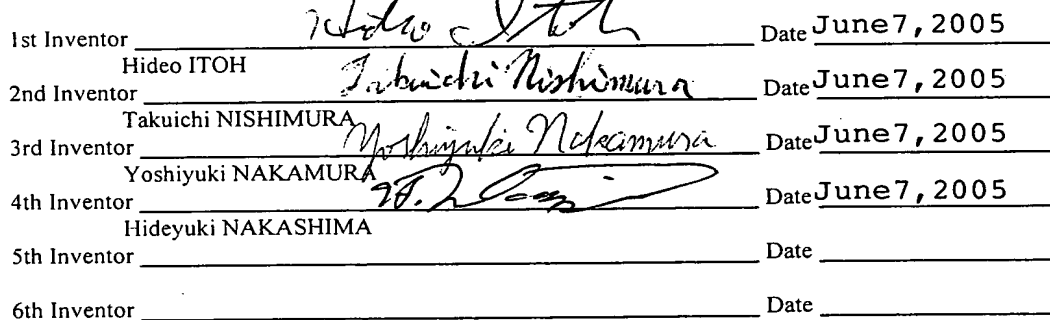 1st Inventor Hideo Itoh Date June 7, 2005
Hideo ITOH
2nd Inventor Takuichi Nishimura Date June 7, 2005
Takuichi NISHIMURA
3rd Inventor Yoshiyuki Nakamura Date June 7, 2005
Yoshiyuki NAKAMURA
4th Inventor H. Date June 7, 2005
Hideyuki NAKASHIMA
5th Inventor Date
6th Inventor Date